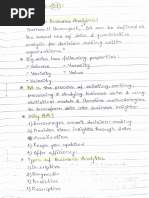 Business Analytics:
Thomas H Davenport, "BA can be defined as
the broad use of data & quantitative
analysis for decision making within
organizations."
Big data has following properties:
- Volume - Variety
- Variety - Value
- Velocity
BA is the process of collecting,
processing & studying business data & using
statistical models & iterative methodologies
to transform data into business insights
Why BA?
1) Encourages smart decision-making
2) Provides clear insights through data
3) Keeps you updated
4) Offer efficiency
Types of Business Analytics
1) Descriptive
2) Diagnostic
3) Predictive
4) Prescriptive